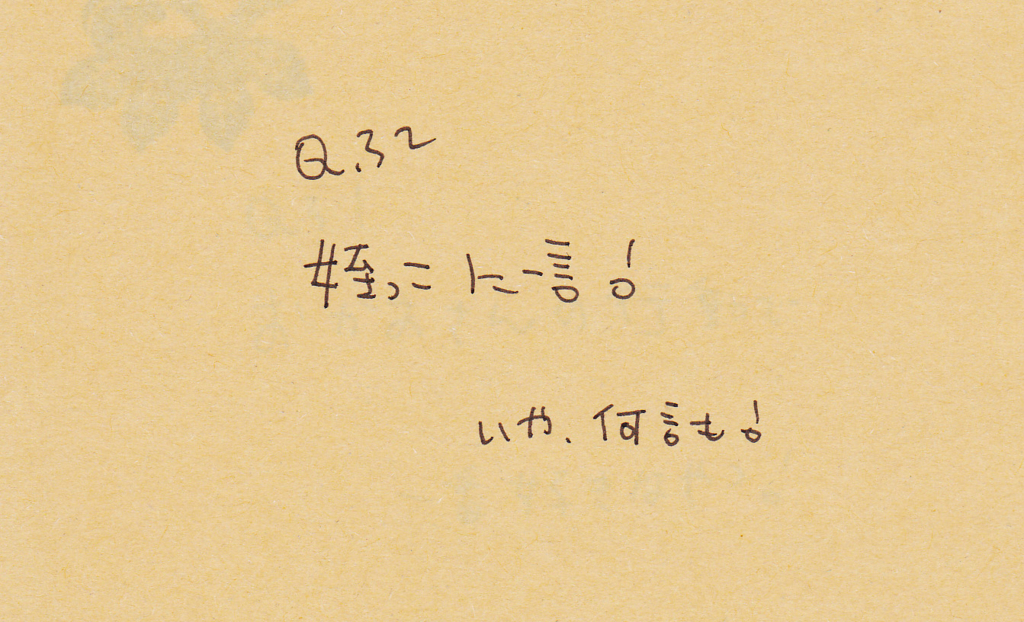 Q.32
姪っこに一言!
いや、何言も!